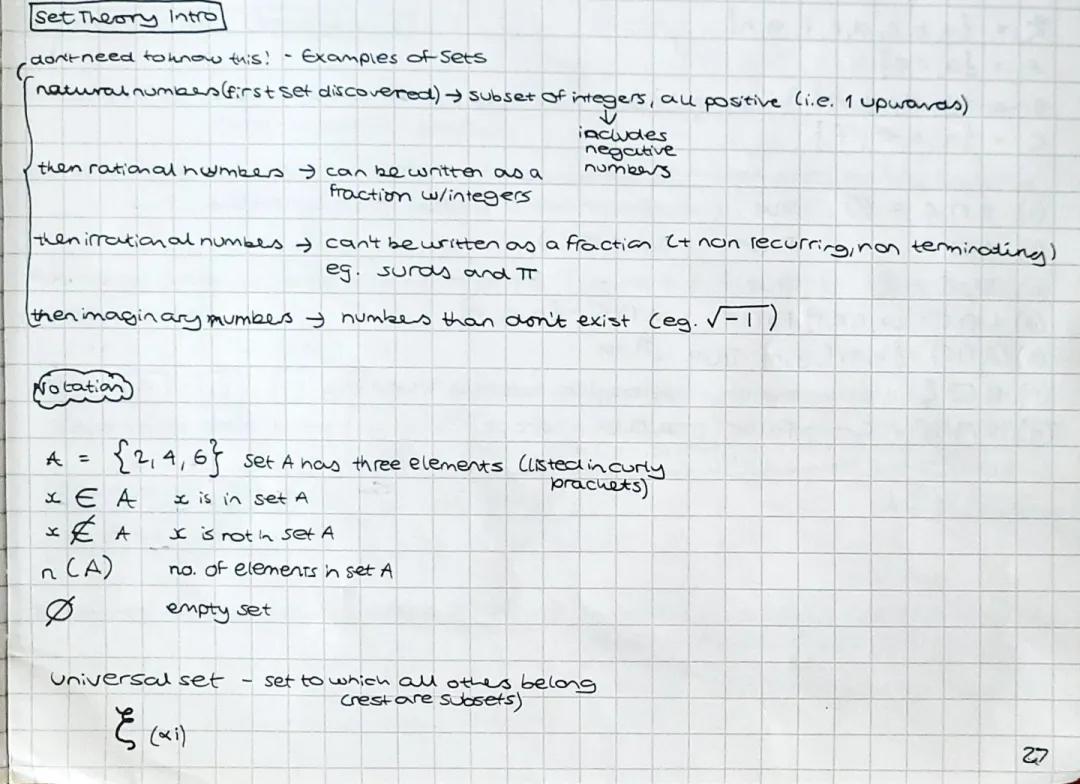 Set Theory Intro
don't need to know this! - Examples of Sets
natural numbers (first set discovered) → subset of integers, all positive (i.e. 1 upwards)
↓
includes
negative
numbers
then rational numbers → can be written as a
fraction w/integers
then irrational numbes → can't be written as a fraction (+ non recurring, non terminating)
eg. surds and π
then imaginary numbers → numbers than don't exist (eg. √-1)
Notation
A = {2, 4, 6} set A has three elements (listed in curly
brackets)
x ∈ A x is in set A
x ∉ A x is not in set A
n(A) no. of elements in set A
∅ empty set
universal set - set to which all others belong
(rest are subsets)
ξ (xi)
27